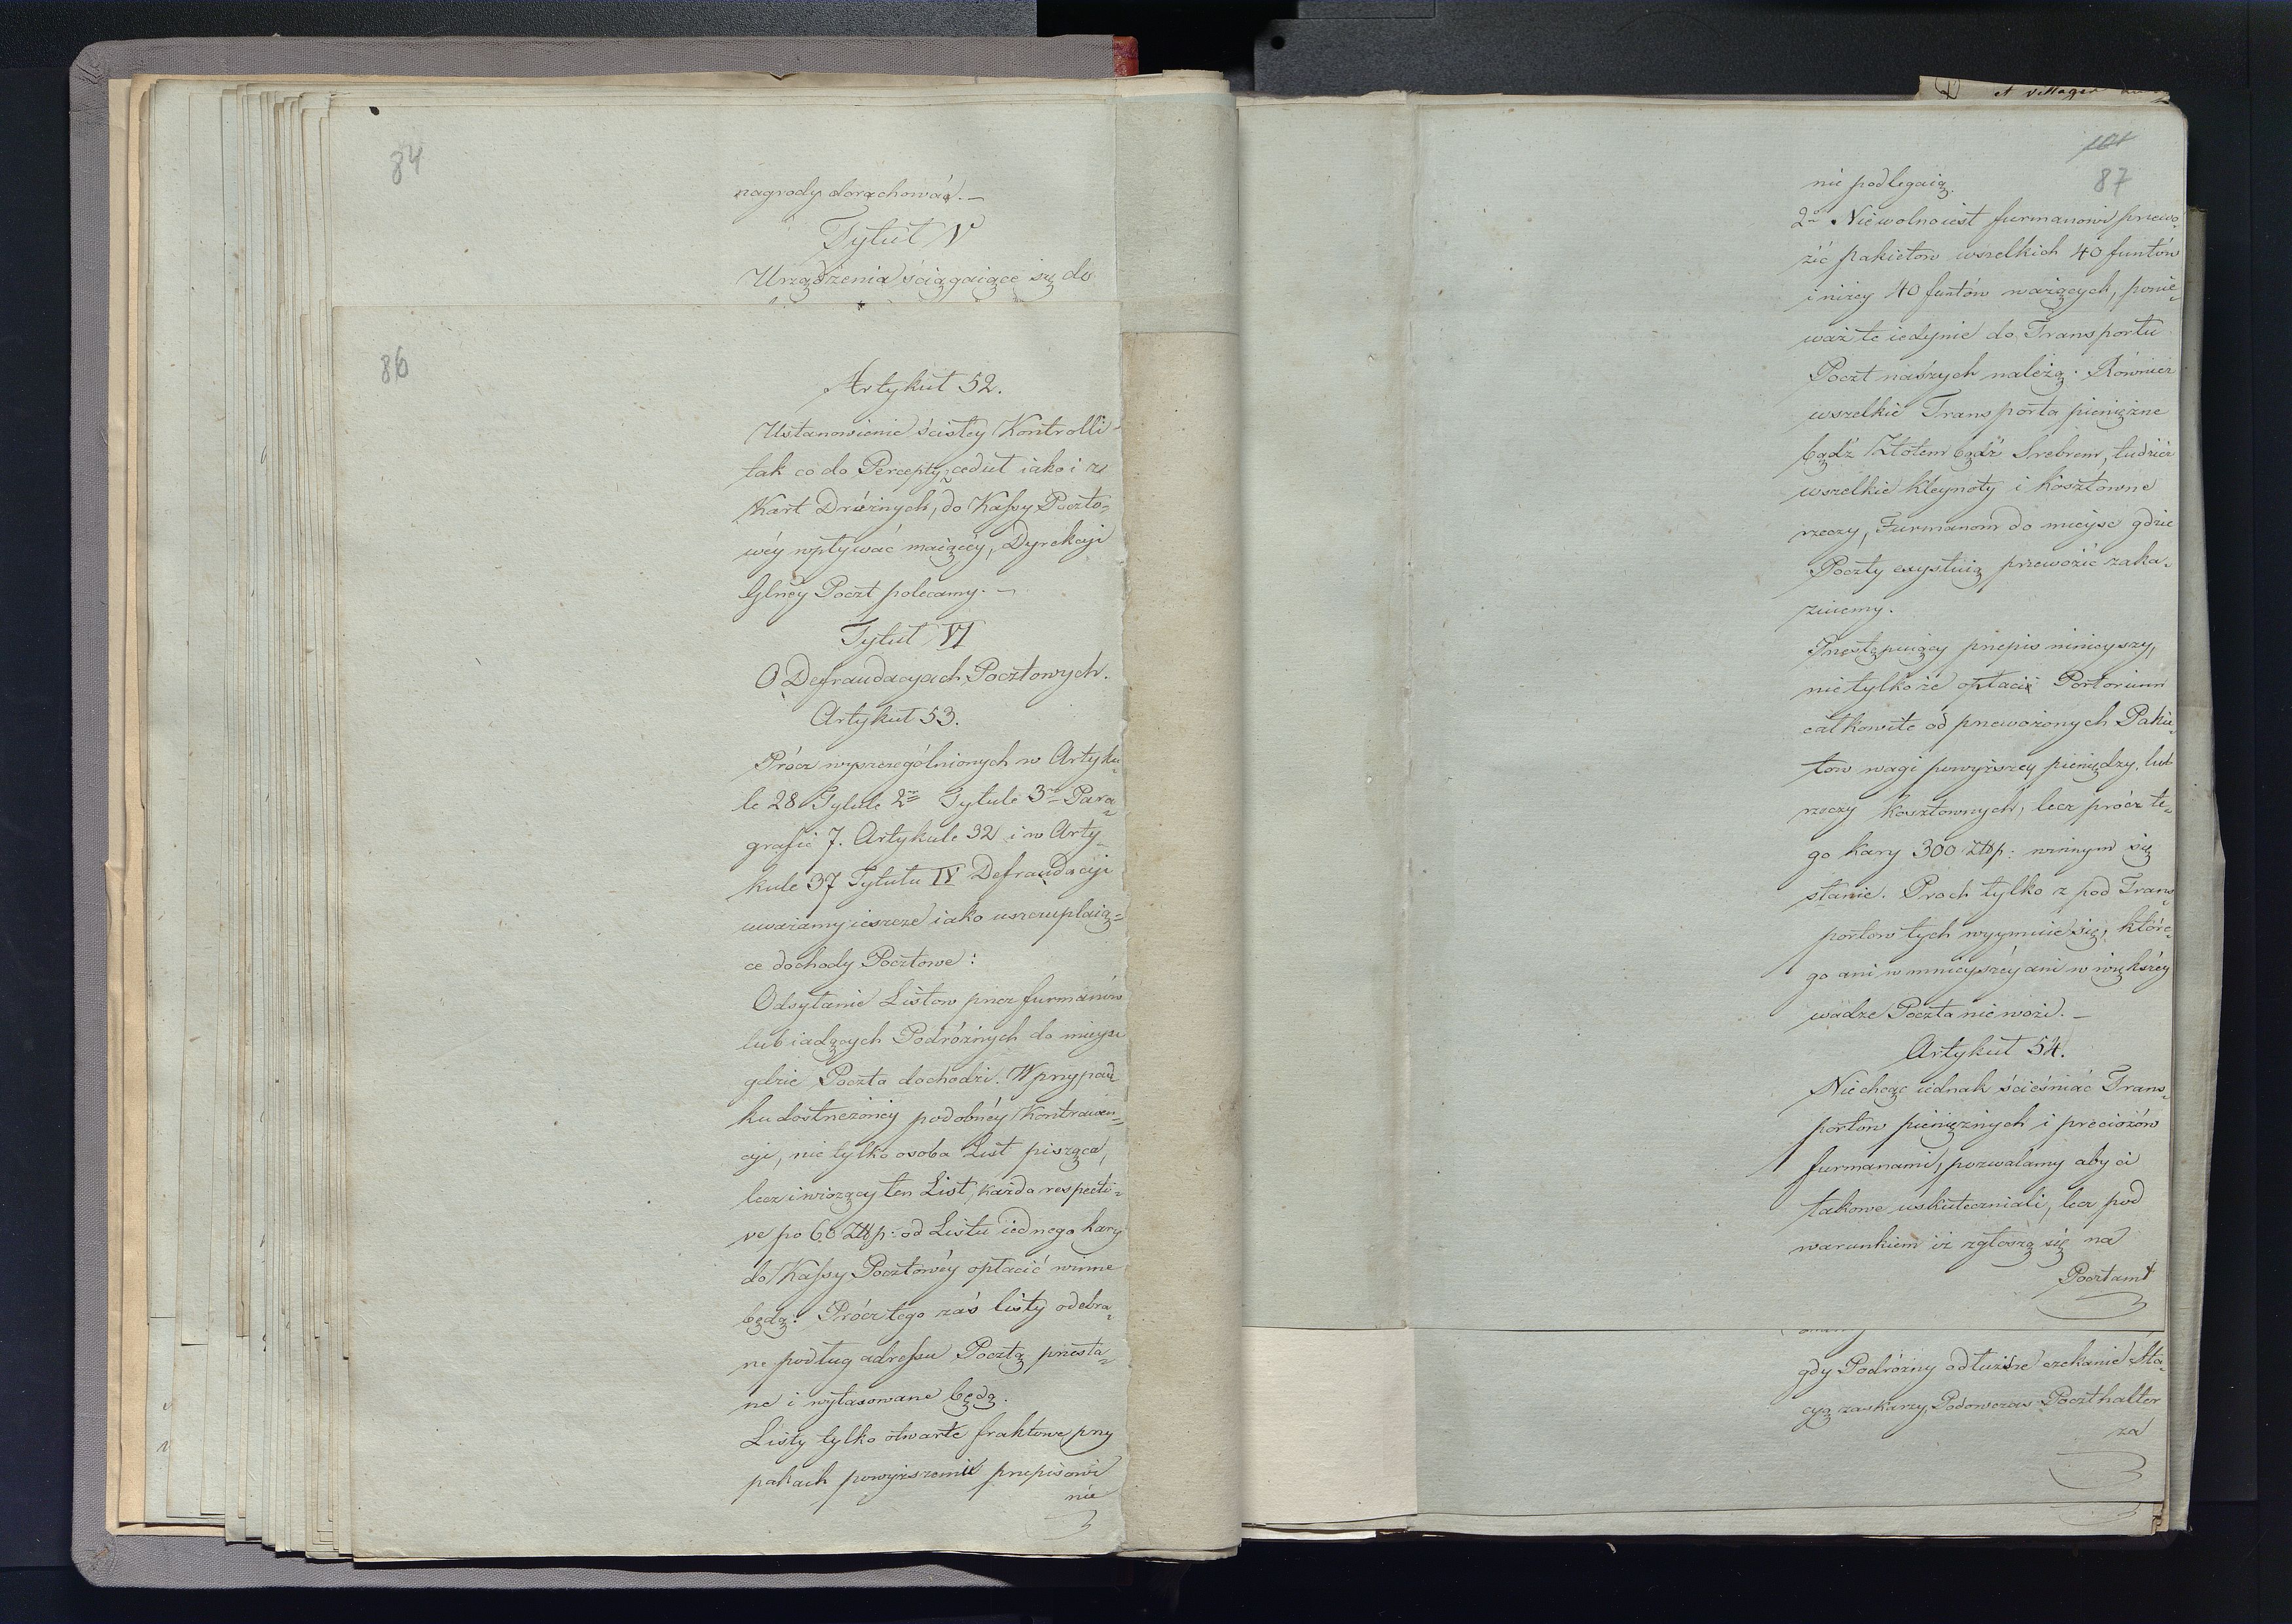 84
nagrody dorachować. —
Tytuł V
Urządzenia ściągaiące się do
86
Artykuł 52.
Ustanowienie ścisłey Kontrolli
tak co do Percepty, cedut iako i ze
Kart Dróżnych, do Kassy Poczto=
wéy wpływać maiącéy, Dyrekcyi
Glnéy Poczt polecamy. —
Tytuł VI
O Defraudacyach Pocztowych.
Artykuł 53.
Prócz wyszczególnionych w Artyku=
le 28 Tytule 2m Tytule 3m Para=
grafie 7. Artykule 32 i w Arty=
kule 37 Tytułu IV Defraudacyi
uważamy ieszcze iako uszczuplaią=
ce dochody Pocztowe:
Odsyłanie Listow przez furmanów
lub iadących Podróżnych do mieysc
gdzie Poczta dochodzi. W przypad=
ku dostrzeżonéy podobnéy Kontrawen=
cyi, nie tylko osoba List pisząca,
lecz i wiozący ten List, każda respecti=
ve po 60 Złłp: od Listu iednego kary
do Kassy Pocztowéy opłacić winne
będą. Prócz tego zaś listy odebra=
ne podług adressu Pocztą przesła=
ne i wytaxowane będą.
Listy tylko otwarte frachtowe przy
pakach powyższemu przepisowi
nie
87
nie podlegaią.
2o Nie wolno iest furmanowi przewo=
zić pakietow wszelkich 40 funtów
i niżey 40 funtów ważących, ponie=
waż te iedynie do Transportu
Poczt naszych należą. Równiez
wszelkie Transporta pieniężne
bądź Złotem bądź Srebrem, tudzież
wszelkie kleynoty i kosztowne
rzeczy, Furmanom do mieysc gdzie
Poczty exystuią przewozić zaka=
zuiemy.
Przestępuiący przepis ninieyszy,
nie tylko że opłaci Portorium
całkowite od przewożonych Pakie=
tow wagi powyższey pieniędzy, lub
rzeczy kosztownych, lecz prócz te=
go kary 300 Złłp: winnym się
stanie. Proch tylko z pod Trans=
portow tych wyymuie się, które=
go ani w mnieyszéy ani w większéy
wadze Poczta nie wozi. —
Artykuł 54.
Nie chcąc iednak ścieśniać Trans=
portow pieniężnych i preciozów
furmanami, pozwalamy aby ci
takowe uskuteczniali, lecz pod
warunkiem iż zgłoszą się na
Pocztamt
gdy Podróżny o dłuższe czekanie Sta=
cyą zaskarzy, Podowczas Poczthalter
za